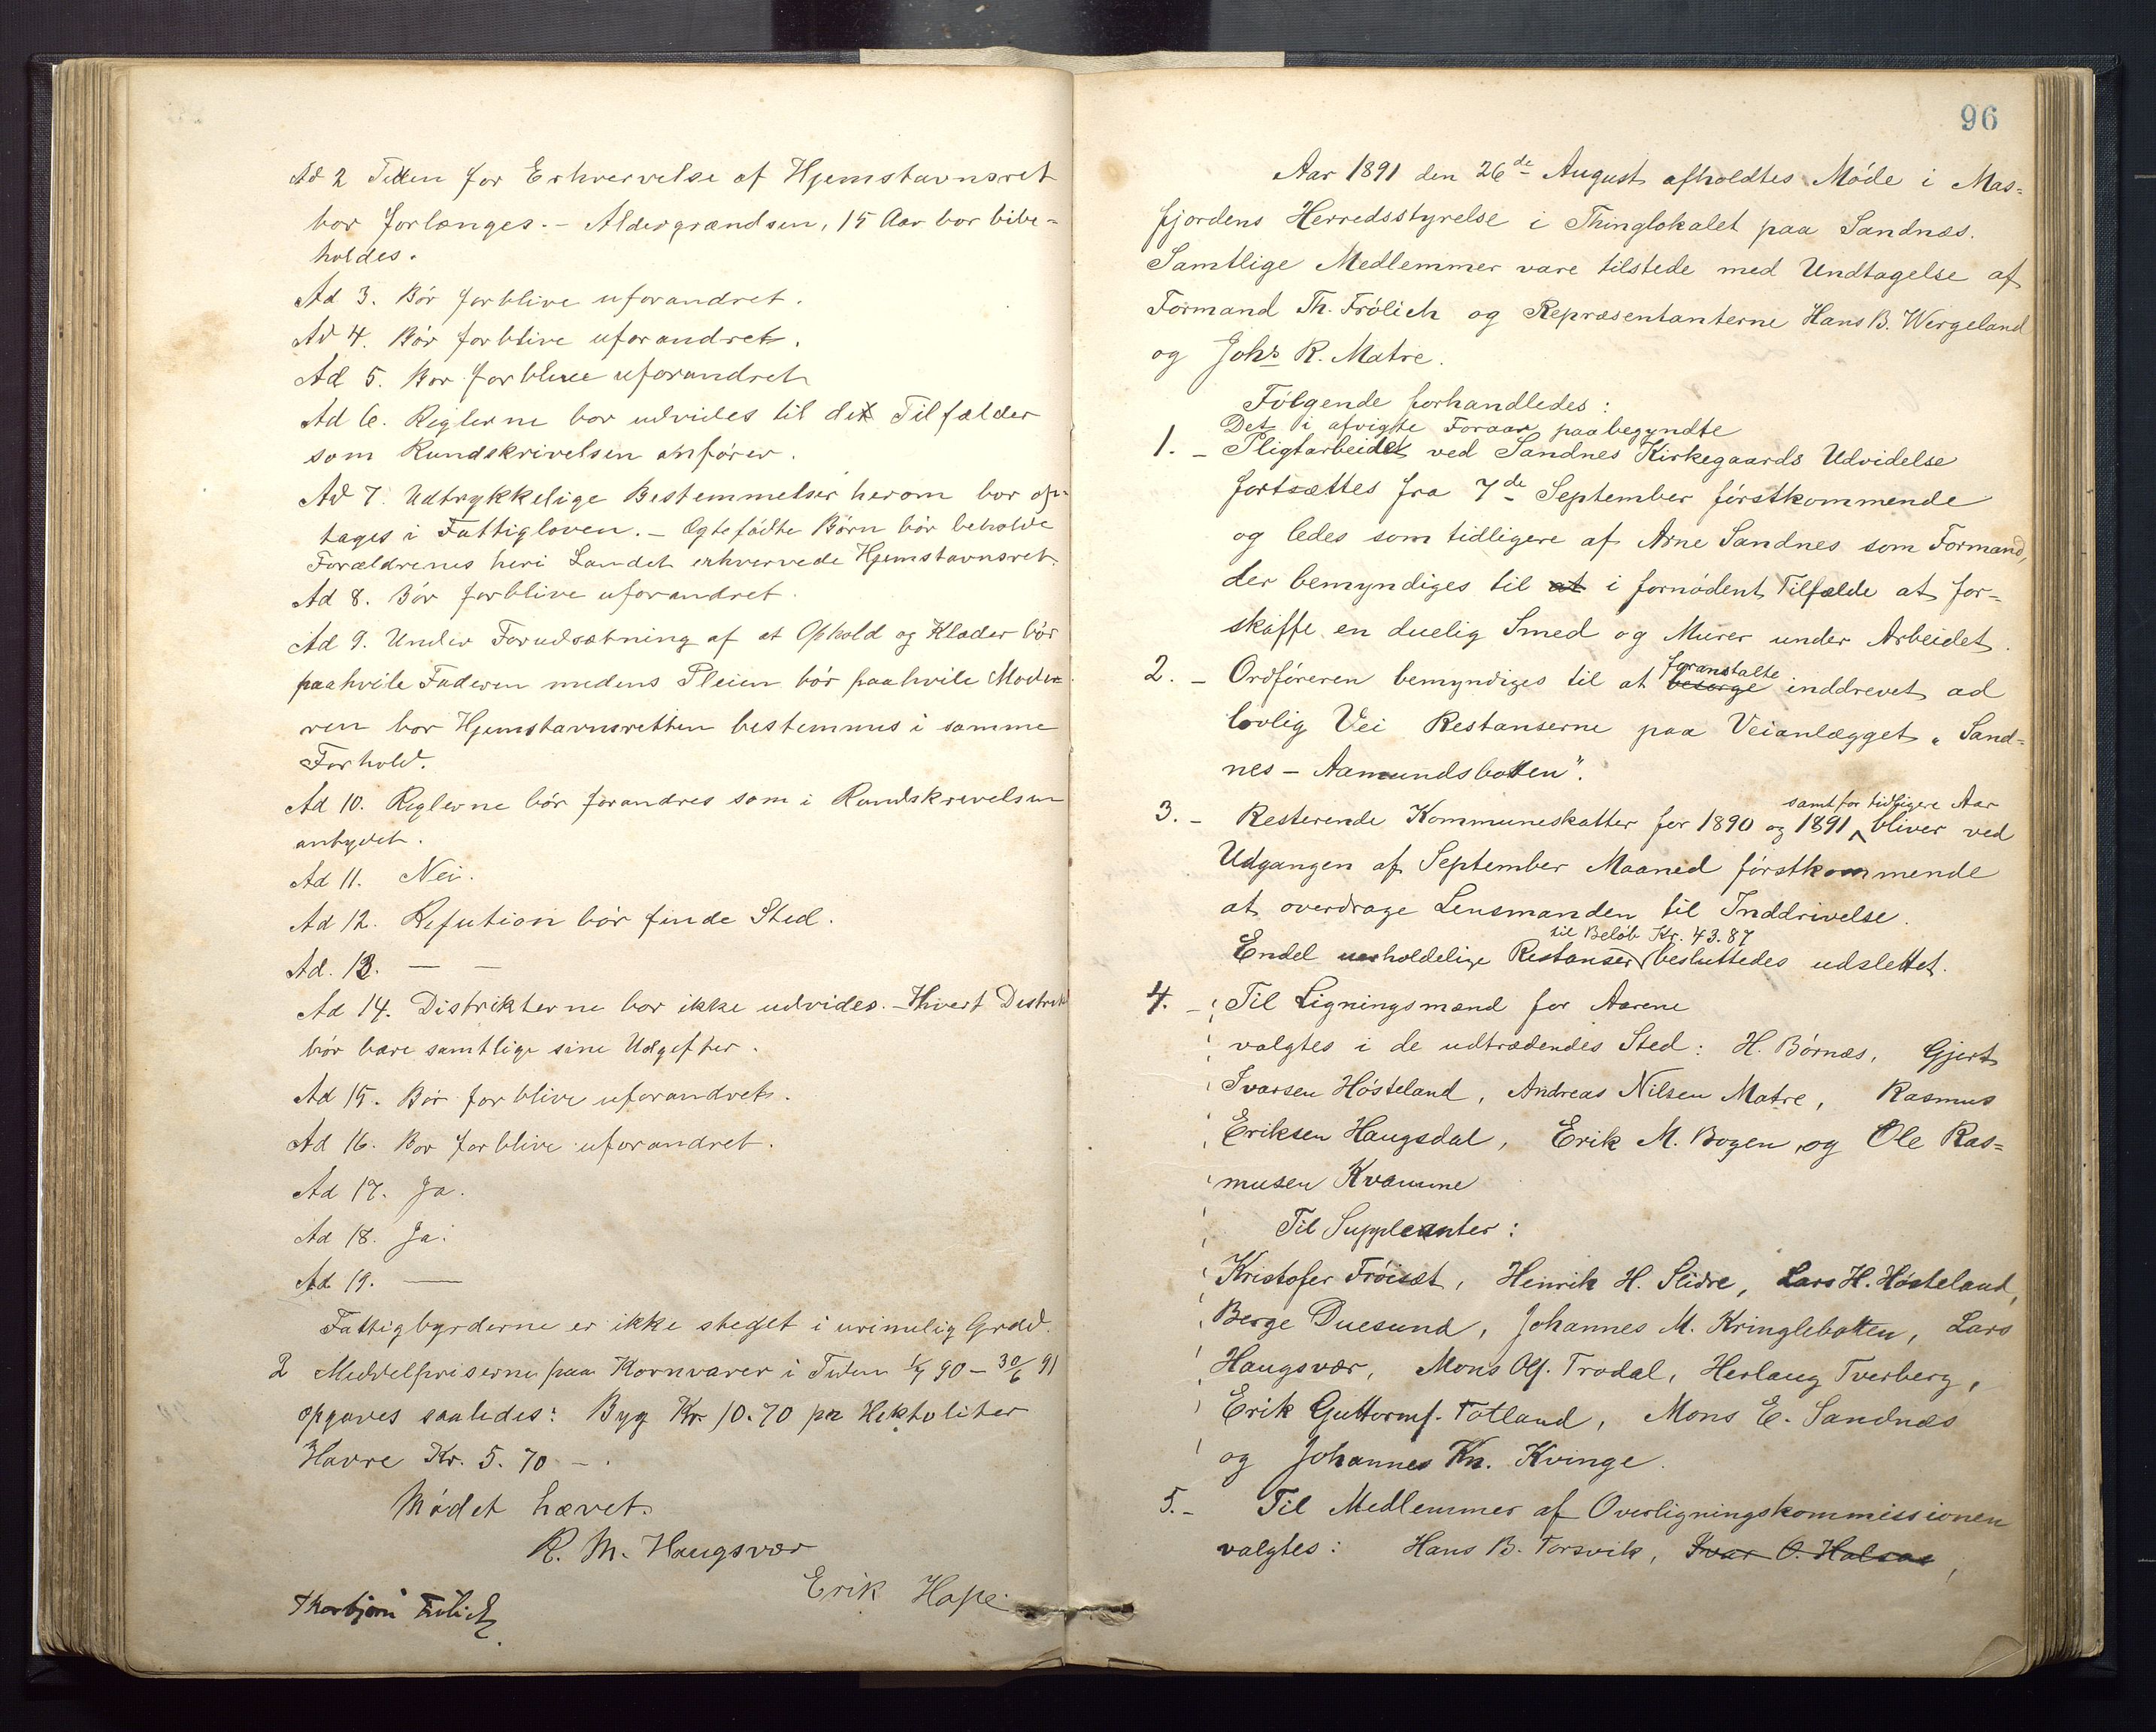 Ad 2 Tiden for Erhvervelse af Hjemstavnsret
bor forlænges. – Aldersgrændsen, 15 Aar bor bibe=
holdes.
Ad 3. Bör forblive uforandret.
Ad 4. Bör forblive uforandret.
Ad 5. Bor forblive uforandret
Ad 6. Reglerne bor udvides til de Tilfælder
som Rundskrivelsen anfører.
Ad 7. Udtrykkelige Bestemmelser herom bor op-
tages i Fattigloven. – Ægtefödte Börn bör beholde
Forældrenes heri Landet erhvervede Hjemstavnsret.
Ad 8. Bör forblive uforandret.
Ad 9. Under Forudsætning af at Ophold og Klæder bör
paahvile Faderen medens Pleien bör paahvile Mode
ren bor Hjemstavnsretten bestemmes i samme
Forhold.
Ad 10. Reglerne bör forandres som i Rundskrivelsen
antydet.
Ad 11. Nei.
Ad 12. Refution bör finde Sted.
Ad. 13. — —
Ad 14. Distrikterne bor ikke udvides. – Hvert Distrikt
bör bære samtlige sine Udgifter.
Ad 15. Bör forblive uforandret.
Ad 16. Bor forblive uforandret.
Ad 17. Ja.
Ad 18. Ja.
Ad 19. —
Fattigbyrderne er ikke steget i urimelig Grad.
2 Middelpriserne paa Kornvarer i Tiden 1/7 90 – 30/6 91
opgaves saaledes: Byg Kr. 10.70 pr Hektoliter
Havre Kr. 5.70 – .
Mödet hævet.
R. M. Haugsvær
Erik Hope
Thorbjörn Frölich
96
Aar 1891 den 26de August afholdtes Möde i Mas=
fjordens Herredsstyrelse i Thinglokalet paa Sandnæs.
Samtlige Medlemmer vare tilstede med Undtagelse af
Formand Th. Frölich og Repræsentanterne Hans B. Wergeland
og Johs R. Matre.
Fölgende forhandledes:
Det i afvigte Foraar paabegyndte
1. – Pligtarbeidet ved Sandnes Kirkegaards Udvidelse
fortsættes fra 7de September förstkommende
og ledes som tidligere af Arne Sandnes som Formand,
der bemyndiges til at i fornödent Tilfælde at for-
skaffe en duelig Smed og Murer under Arbeidet.
foranstalte
2. – Ordföreren bemyndiges til at besørge inddrevet ad
lovlig Vei Restanserne paa Veianlægget „Sand=
nes – Aamundsbotten".
samt for tidligere Aar
3. – Resterende Kommuneskatter for 1890 og 1891 bliver ved
Udgangen af September Maaned förstkommende
at overdrage Lensmanden til Inddrivelse.
til Belöb Kr. 43.87
Endel uerholdelige Restanser besluttedes udslettet.
4. – Til Ligningsmænd for Aarene
valgtes i de udtrædendes Sted: H. Börnæs, Gjert
Ivarsen Hösteland, Andreas Nilsen Matre, Rasmus
Eriksen Haugsdal, Erik M. Bogen, og Ole Ras=
musen Kvamme
Til Suppleanter:
Kristofer Fröisæt, Henrik H. Slidre, Lars H. Hösteland,
Berge Duesund, Johannes M. Kringlebotten, Lars
Haugsvær, Mons Olf. Trodal, Herlaug Tverberg,
Erik Guttormf. Totland, Mons E. Sandnæs
og Johannes Kn. Kvinge.
5. – Til Medlemmer af Overligningskommissionen
valgtes: Hans B. Torsvik, Ivar O. Halsøe,